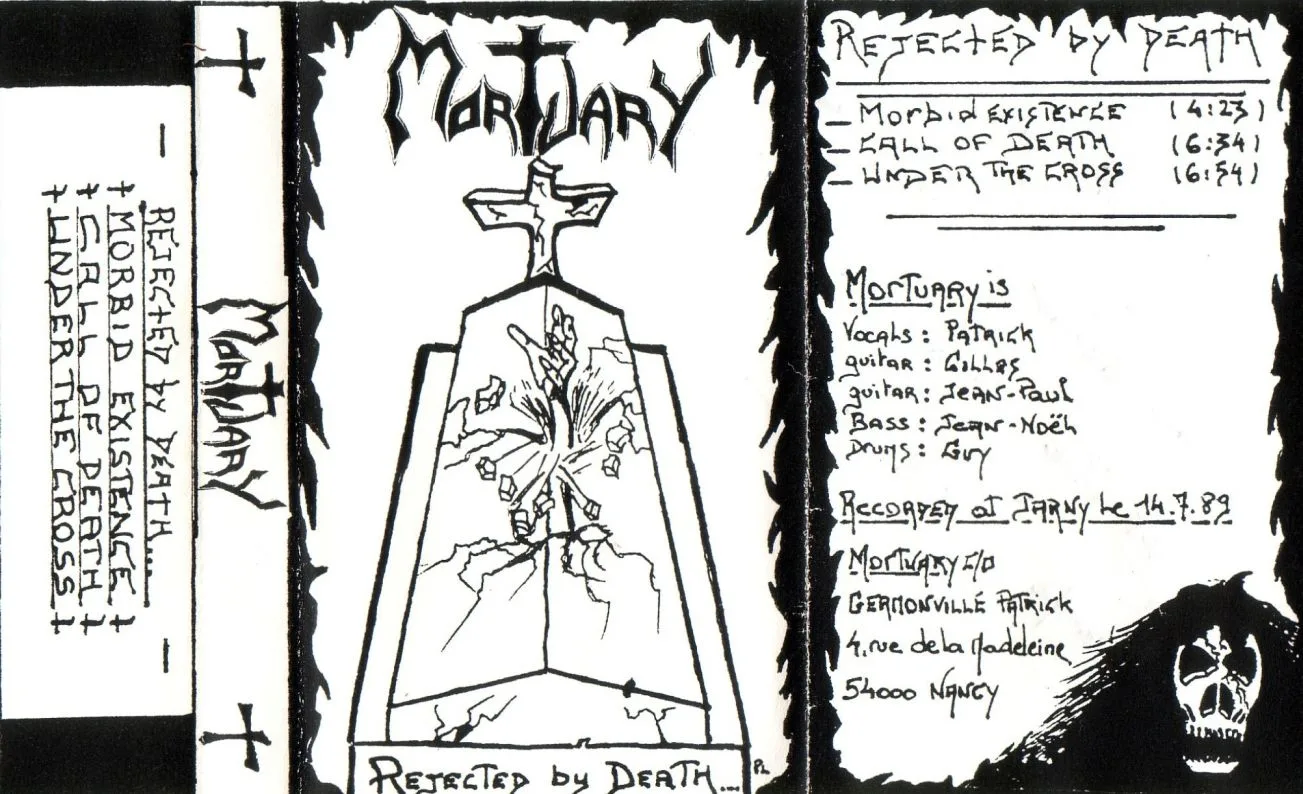 — REJECTED by DEATH..... —
† MORBID EXISTENCE †
‡ CALL OF DEATH ‡
† UNDER THE CROSS †
MORTUARY
MORTUARY
REJECTED by DEATH...
PL
REJECTED by DEATH
_ Morbid EXISTENCE (4:23)
_ CALL OF DEATH (6:34)
_ UNDER THE CROSS (6:54)
MORTUARY is
Vocals : PATRICK
guitar : Gilles
guitar : JEAN-PAUL
BASS : JEAN-NOËL
Drums : GUY
RECORDED at JARNY Le 14.7.89
MORTUARY C/O
GERMONVILLE PATRICK
4, rue de la Madeleine
54000 NANCY